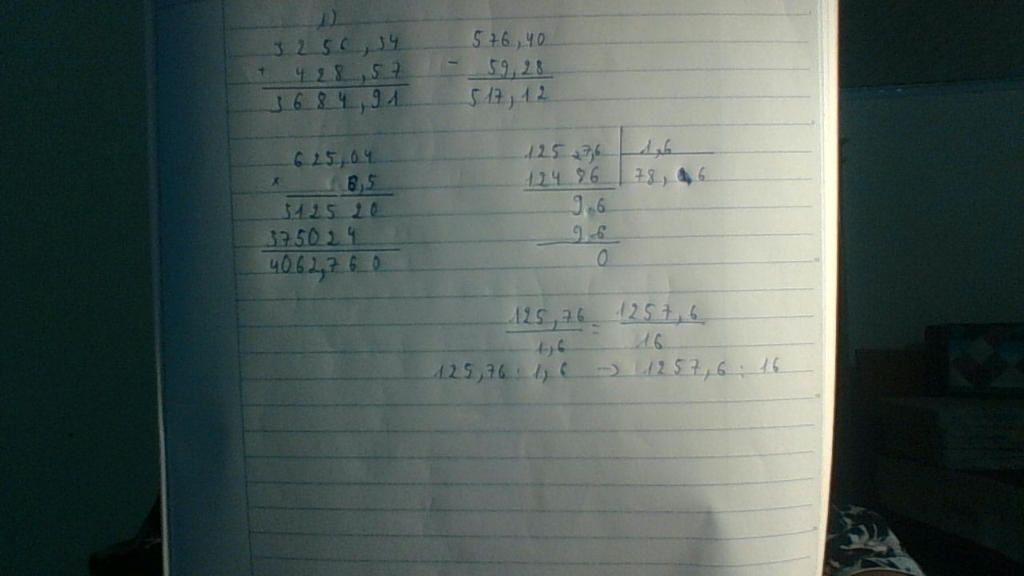 1)
3256,34
+ 428,57
3684,91
576,40
- 59,28
517,12
625,04
× 6,5
3125 20
375024
4062,760
125,7,6 1,6
124 86 78,6
9.6
9.6
0
125,76 = 1257,6
1,6 16
125,76 : 1,6 → 1257,6 : 16